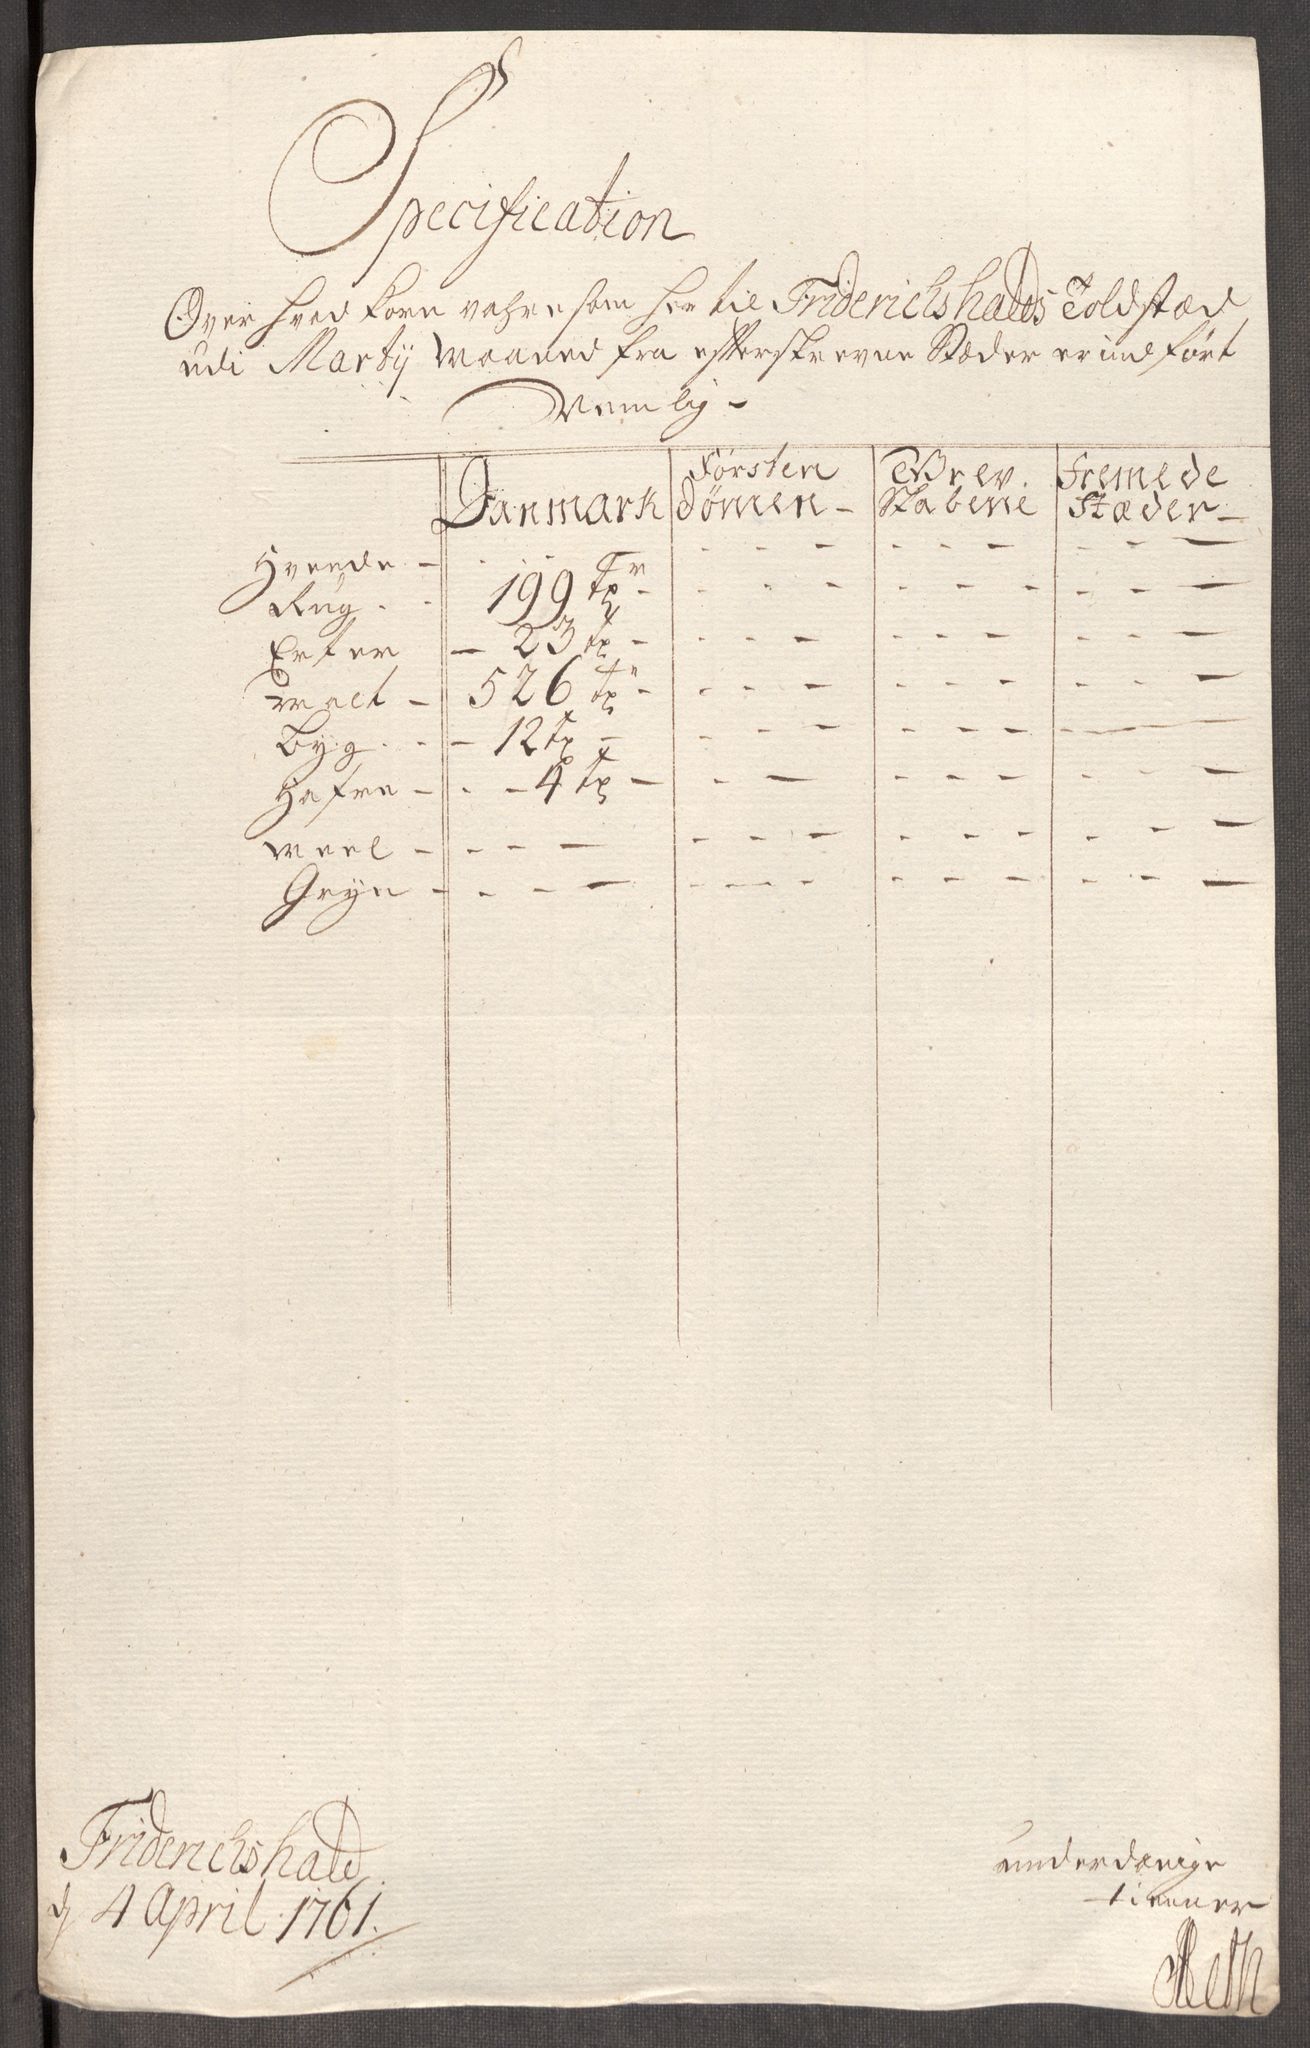 Specification
Over hved Korn vahre som her til Friderichshalds Toldstæd
udi Martij Maaned fra efterskrevne Stæder er indført
Nemlig -
Danmark Førsten Dømen - Grev Skabene Fremede Stæder -
Hveede -
Rug 199 Tr
Erter - 23 Tr
Malt - 526 Tr
Byg - 12 Tr
Hafre - 4 Tr
Meel -
Gryn -
Friderichshald
d 4 April 1761.
underdanige
tienner